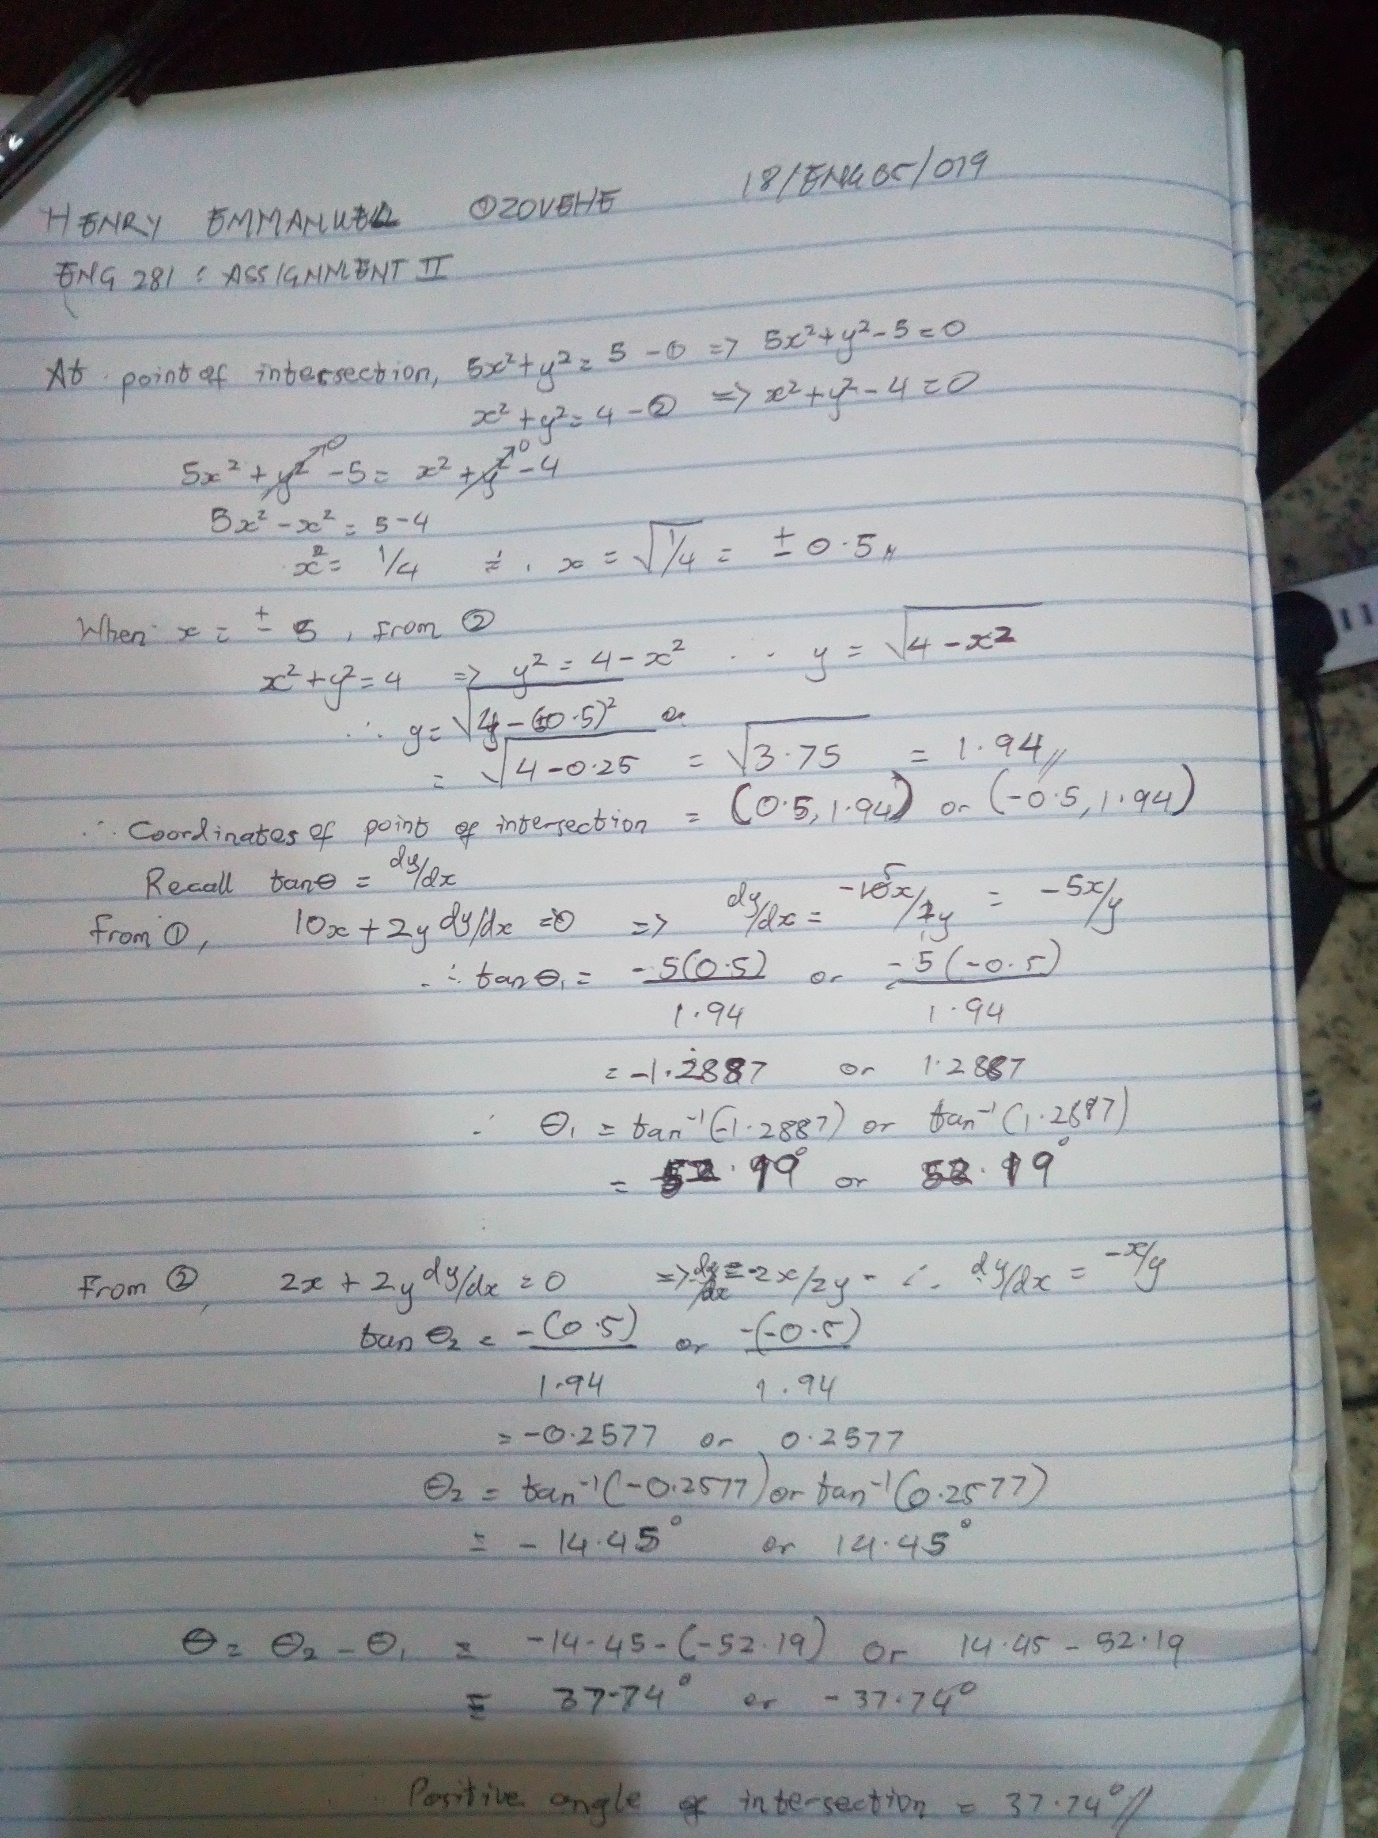 HENRY EMMANUEL OZOVEHE 18/ENG05/019
ENG 281 : ASSIGNMENT II
At point of intersection, 5x² + y² = 5 - ① => 5x² + y² - 5 = 0
x² + y² = 4 - ② => x² + y² - 4 = 0
5x² + y²↗0 - 5 = x² + y²↗0 - 4
5x² - x² = 5 - 4
x² = 1/4 ∴ x = √1/4 = ± 0.5 //
When x = ± 5, from ②
x² + y² = 4 => y² = 4 - x² ∴ y = √4 - x²
∴ y = √4 - (±0.5)²
= √4 - 0.25 = √3.75 = 1.94 //
∴ Coordinates of point of intersection = (0.5, 1.94) or (-0.5, 1.94)
Recall tanθ = dy/dx
from ①, 10x + 2y dy/dx = 0 => dy/dx = -10x/2y = -5x/y
∴ tan θ₁ = -5(0.5)/1.94 or -5(-0.5)/1.94
= -1.2887 or 1.2887
∴ θ₁ = tan⁻¹(-1.2887) or tan⁻¹(1.2887)
= 52.19° or 52.19°
From ②, 2x + 2y dy/dx = 0 => dy/dx = -2x/2y - ∴ dy/dx = -x/y
tan θ₂ = -(0.5)/1.94 or -(-0.5)/1.94
= -0.2577 or 0.2577
θ₂ = tan⁻¹(-0.2577) or tan⁻¹(0.2577)
= -14.45° or 14.45°
θ = θ₂ - θ₁ = -14.45 - (-52.19) or 14.45 - 52.19
= 37.74° or -37.74°
Positive angle of intersection = 37.74° //